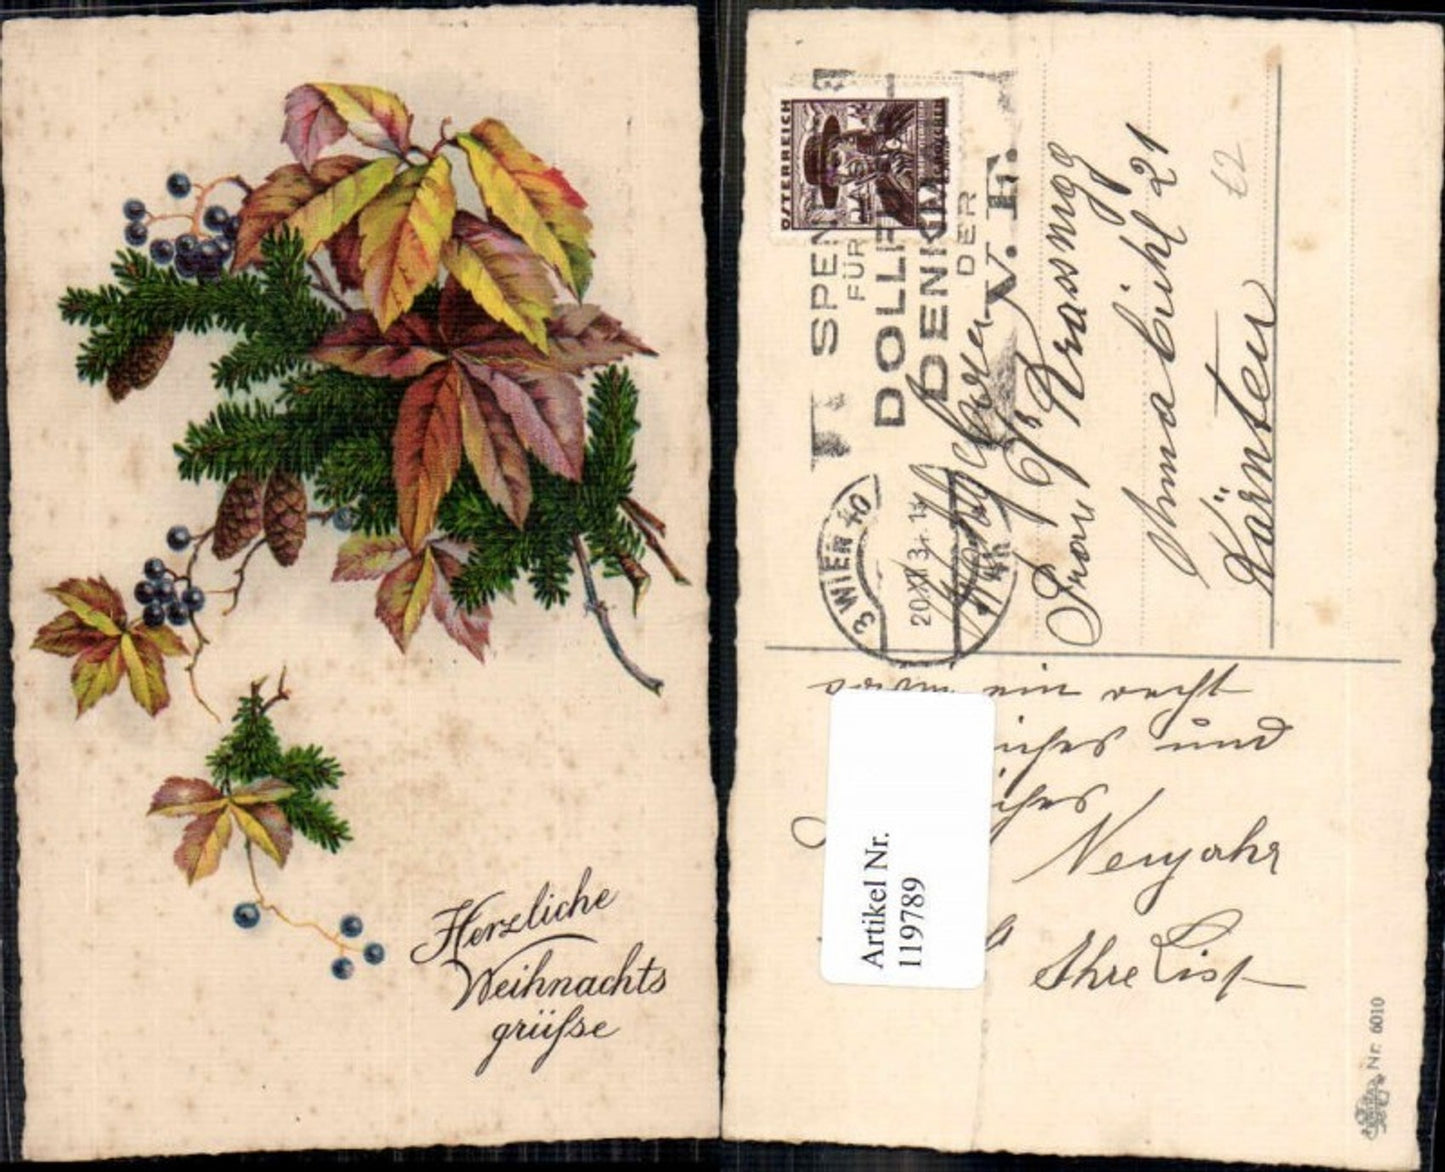 Herzliche
Weihnachts
grüße
ÖSTERREICH
SPEN
FÜR
DOLLF
DENKM
DER
V. F.
3 WIEN 40
20.XII.3
Hochwohlgeboren
Frau
Krassnigg
bühl 21
Kärnten
£2
ein recht
und
Neujahr
Ihre Lisl
Artikel Nr.
119789
Nr. 6010